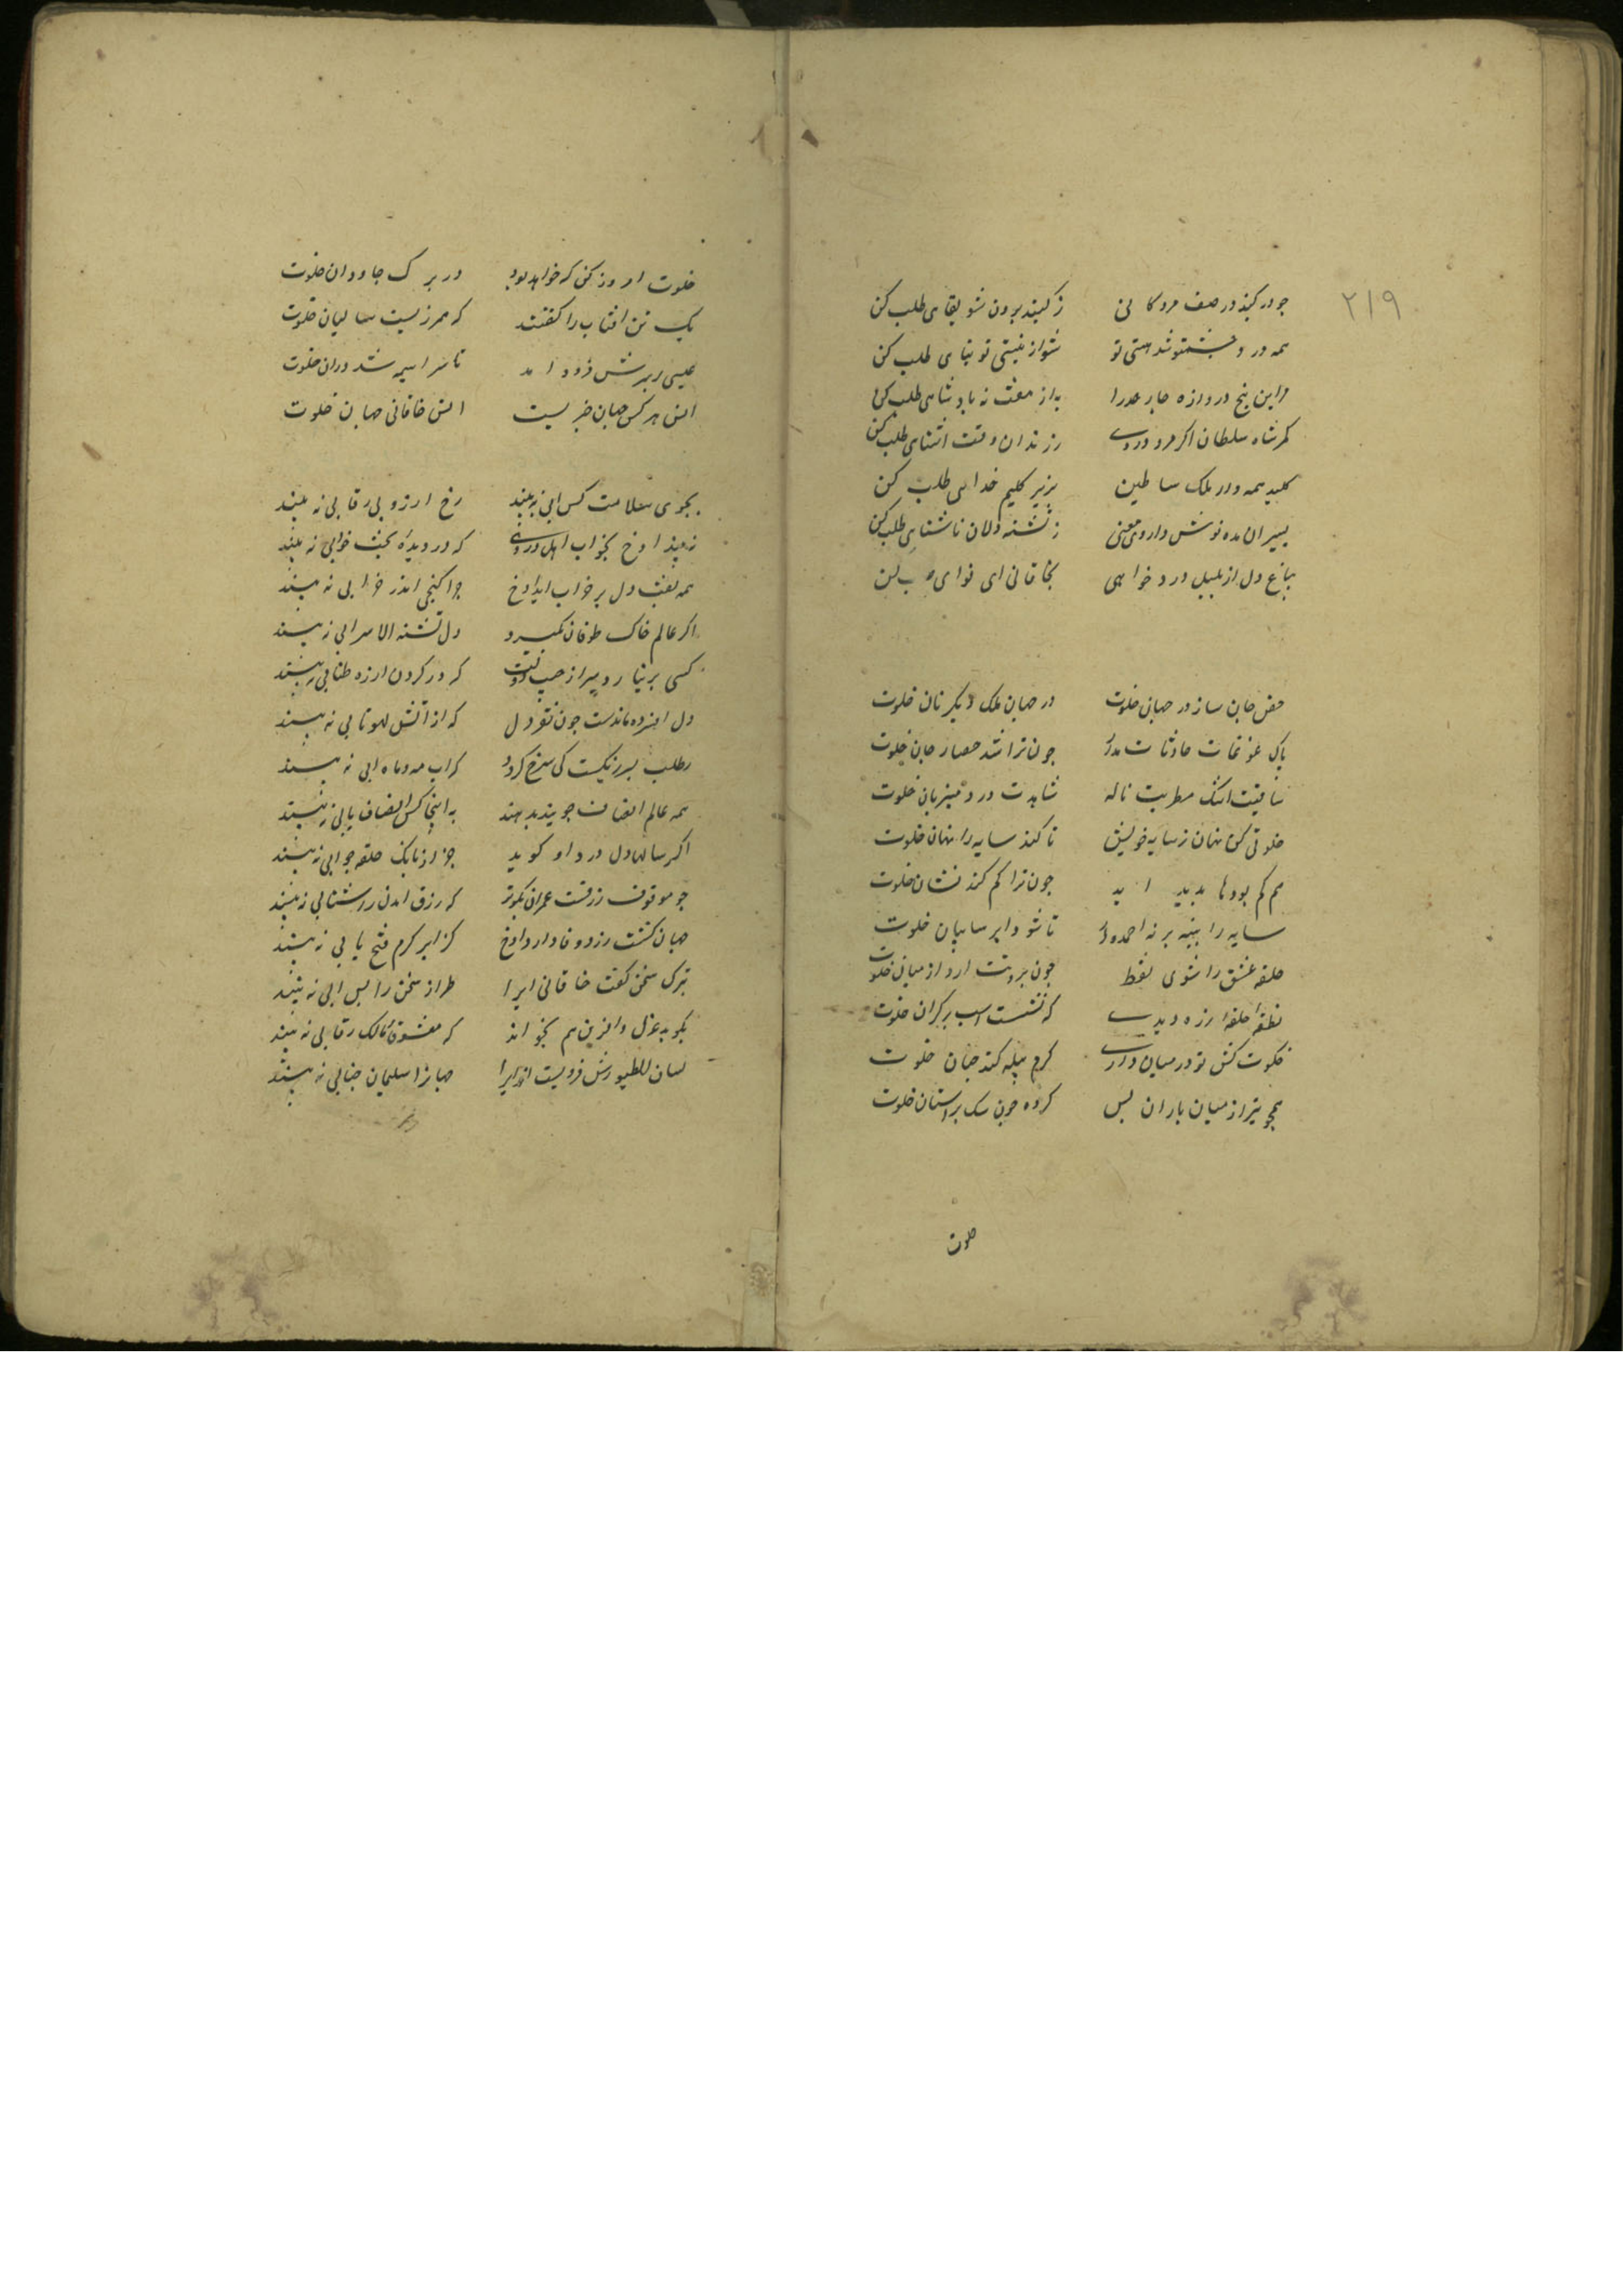 ۲۱۹
جو در کنبد در صف مردکانی ز کنبد برون شو بقای طلب کن
همه درد چشمت شد هستی تو شو از نیستی توتیای طلب کن
درین پنج دروازه چار حد را به از هفت نه بادشاهی طلب کن
کمر شاه سلطان اکر مردردی ز زندان وقت اشنای طلب کن
کلید همه دار ملک سلاطین بزیر کلیم خدایی طلب کن
بسیران مده نوش داروی معنی ز تشنه دلان ناشتایی طلب کن
بباغ دل از بلبل درد خواهی بخاقانی ای نوای طلب کن
حصن جان ساز در جهان خلوت در جهان ملک دیکر نان خلوت
باک غوغات حادثات مدار جون ترا شد حصار جان خلوت
ساقیت اشک مطربت ناله شاهدت درد میزبان خلوت
خلوتی کن نهان ز سایه خویش تا کند سایه را نهان خلوت
هم کم بودها بدید اید جون ترا کم کند نشان خلوت
سایه را بنبه برنه احمدوار تا شود ابر سایبان خلوت
حلقه عشق را شوی نقطه جون برونت ارد از میان خلوت
نطقه حلقه ار زه دیدی که نشست اسب بر کران خلوت
خلوت کش تو در میان داری کرم پیله کند جنان خلوت
همجو تیر از میان یاران بس کرده جون سک بر استان خلوت
خلوت
خلوت امروز کن که خواهد بود در برک جاودان خلوت
یک تن افتاب را کفتند که هم رزیست سالیان خلوت
عیسی در برش فرود امد تا سراسیمه شد دران خلوت
انس هر کس جهان خبر نیست انس خاقانی جهان خلوت
بجوی سلامت کس ابی نه بیند رخ ارزو بی رقابی نه بیند
نبیند اوخ بخواب اهل دردی که در دیده بخت خوابی نه بیند
همه نقب دل بر خراب اید اوخ جرا کنجی اندر خرابی نه بیند
اکر عالم خاک طوفان بکیرد دل تشنه الا سرابی نه بیند
کسی برنیارد سر از جیب دولت که در کردن ار زه طنابی نه بیند
دل افسرده ماندست جون نفزد دل که از آتش لهو تابی نه بیند
رطلب بس رنکیست کی سرخ کردد کر اب مه و ماه ابی نه بیند
همه عالم انصاف جویند ندهند به اینجا کس انصاف یابی نه بیند
اکر سالها دل در داد کوبد جز از بانک حلقه جوابی نه بیند
جو موقوف رزقست عمر ان نکوتر که رزق امدن را شتابی نه بیند
جهان کشت زرد وفا دارد اوخ کز ابر کرم فتح یابی نه بیند
بترک سخن کفت خاقانی ایرا طراز سخن را بس ابی نه بیند
نکوید غزل وافرین هم نخواند که معشوق مالک رقابی نه بیند
لسان الطیورش فروبست ازیرا جهان را سلیمان جنابی نه بیند